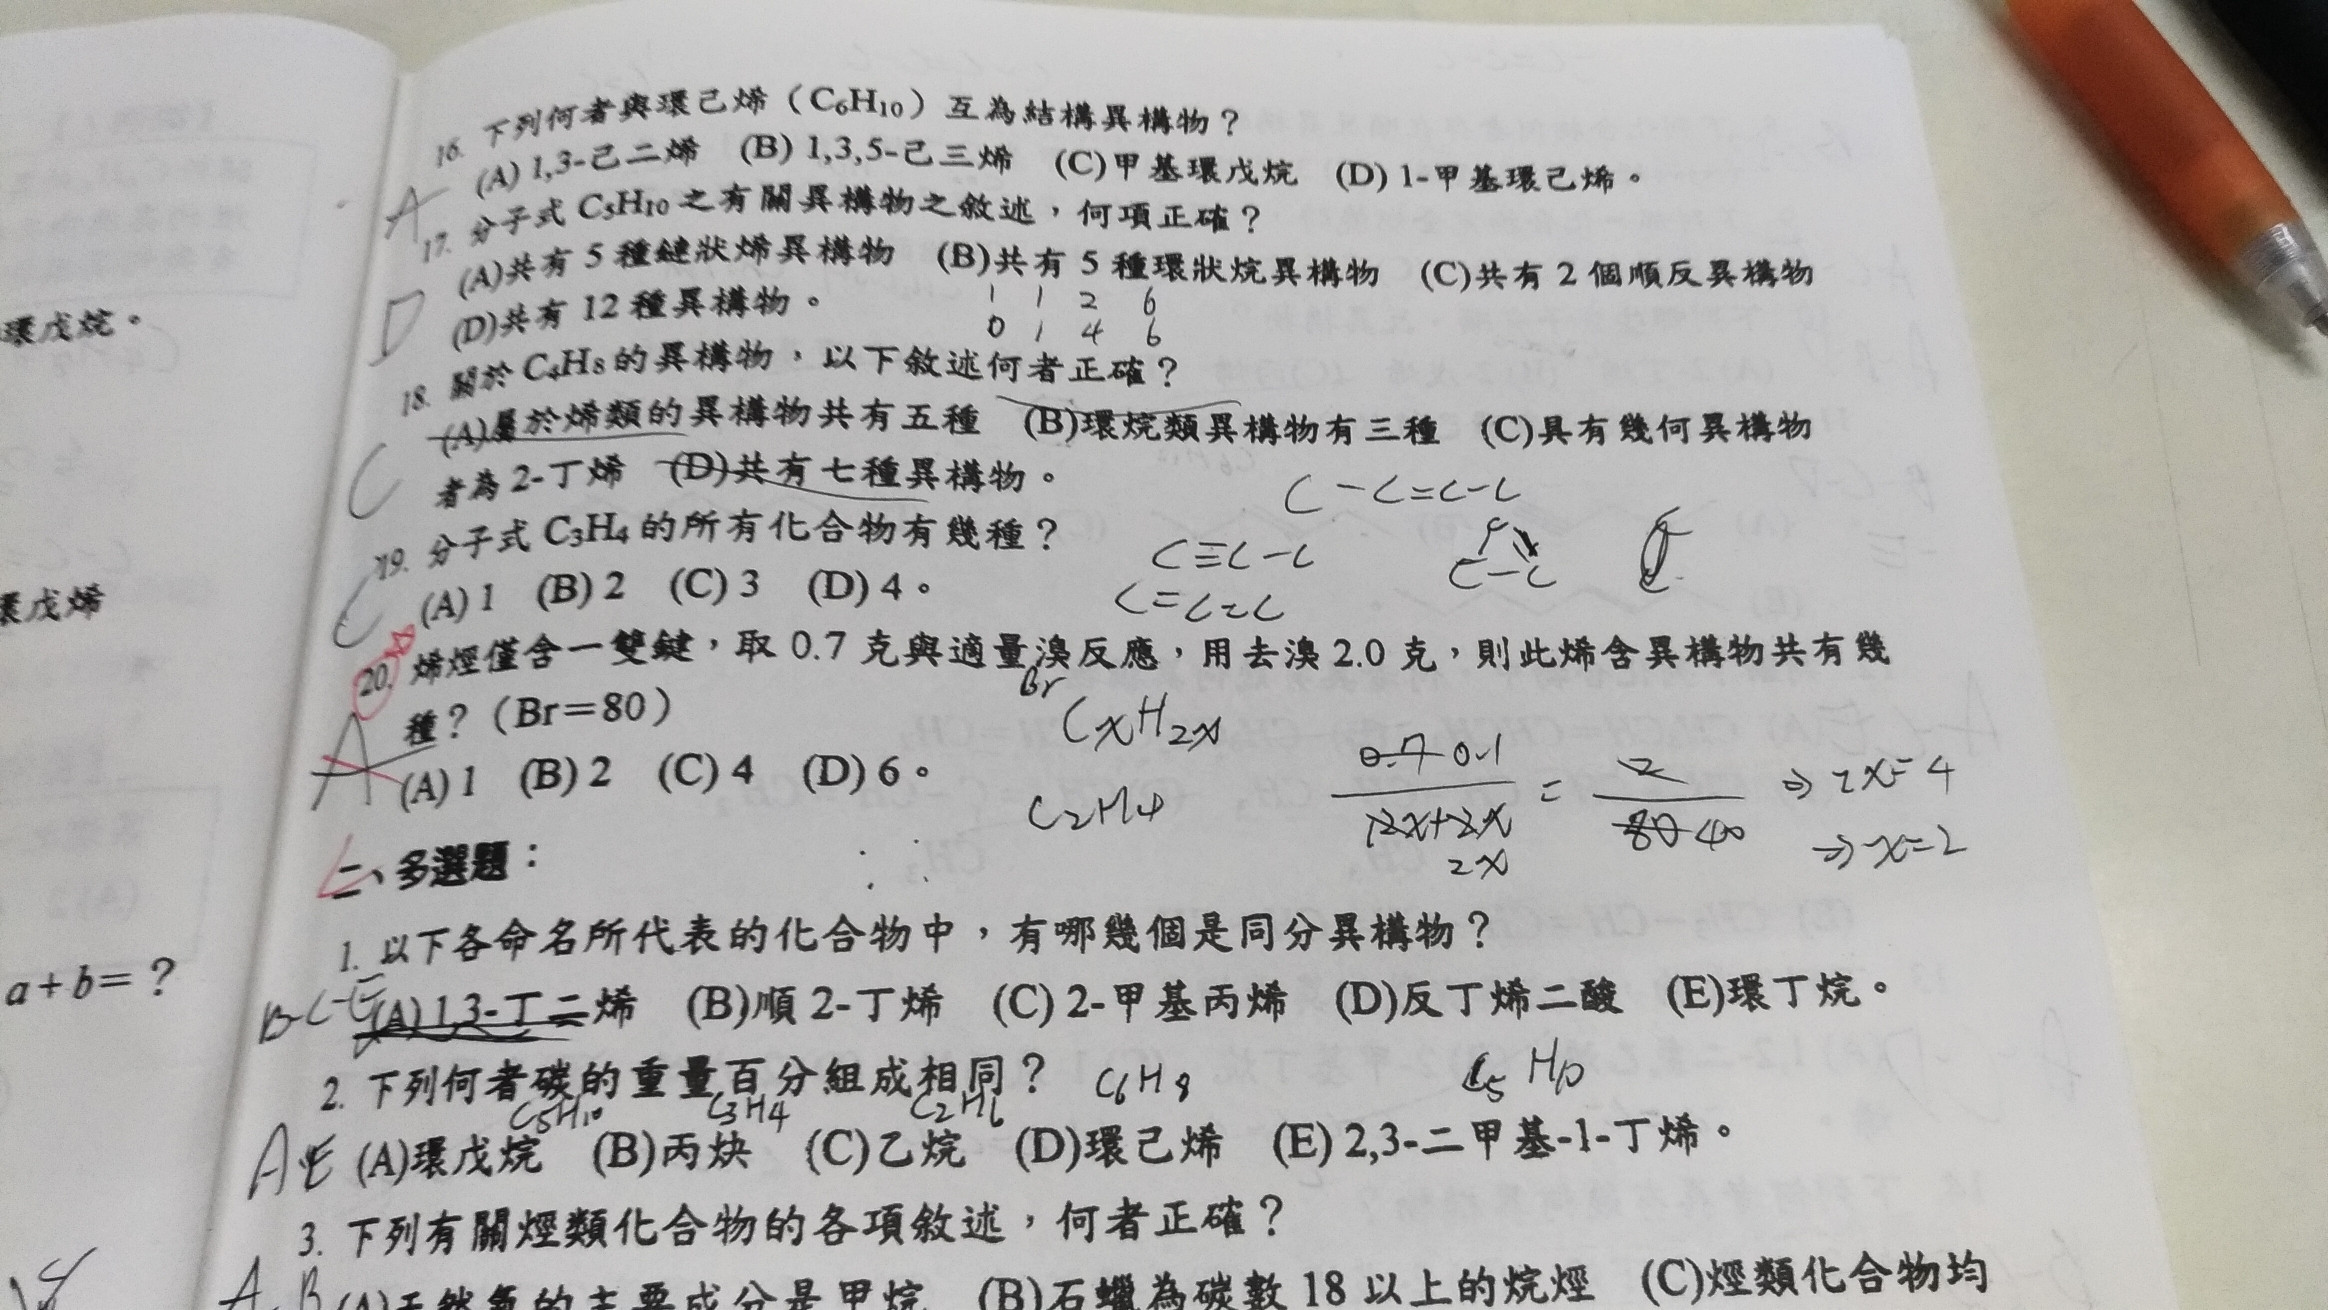 16. 下列何者與環己烯（C₆H₁₀）互為結構異構物？
(A) 1,3-己二烯 (B) 1,3,5-己三烯 (C)甲基環戊烷 (D) 1-甲基環己烯。
A
17. 分子式 C₅H₁₀ 之有關異構物之敘述，何項正確？
(A)共有 5 種鏈狀烯異構物 (B)共有 5 種環狀烷異構物 (C)共有 2 個順反異構物
(D)共有 12 種異構物。
D
1 1 2 6
0 1 4 6
18. 關於 C₄H₈ 的異構物，以下敘述何者正確？
(A)屬於烯類的異構物共有五種 (B)環烷類異構物有三種 (C)具有幾何異構物
者為 2-丁烯 (D)共有七種異構物。
C
C-C=C-C
19. 分子式 C₃H₄ 的所有化合物有幾種？
C≡C-C
(A) 1 (B) 2 (C) 3 (D) 4。
C=C=C
C
20. 烯烴僅含一雙鍵，取 0.7 克與適量溴反應，用去溴 2.0 克，則此烯含異構物共有幾
Br
種？（Br＝80）
CxH2x
(A) 1 (B) 2 (C) 4 (D) 6。
A
C2H4
0.7 0.1
12x+2x
2x
=
2
80 40
⇒ 2x=4
⇒ x=2
二、多選題：
1. 以下各命名所代表的化合物中，有哪幾個是同分異構物？
BCE
(A) 1,3-丁二烯 (B)順 2-丁烯 (C) 2-甲基丙烯 (D)反丁烯二酸 (E)環丁烷。
2. 下列何者碳的重量百分組成相同？
C5H10 C3H4 C2H6 C6H8 C5H10
AE
(A)環戊烷 (B)丙炔 (C)乙烷 (D)環己烯 (E) 2,3-二甲基-1-丁烯。
3. 下列有關烴類化合物的各項敘述，何者正確？
A B
(A)天然氣的主要成分是甲烷 (B)石蠟為碳數 18 以上的烷烴 (C)烴類化合物均
環戊烷。
環戊烯
a＋b＝？